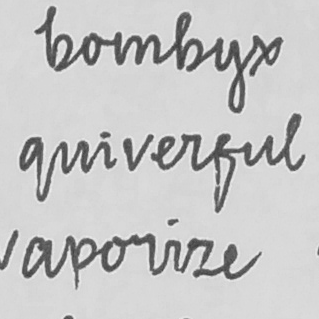 bombyx
quiverful
vaporize